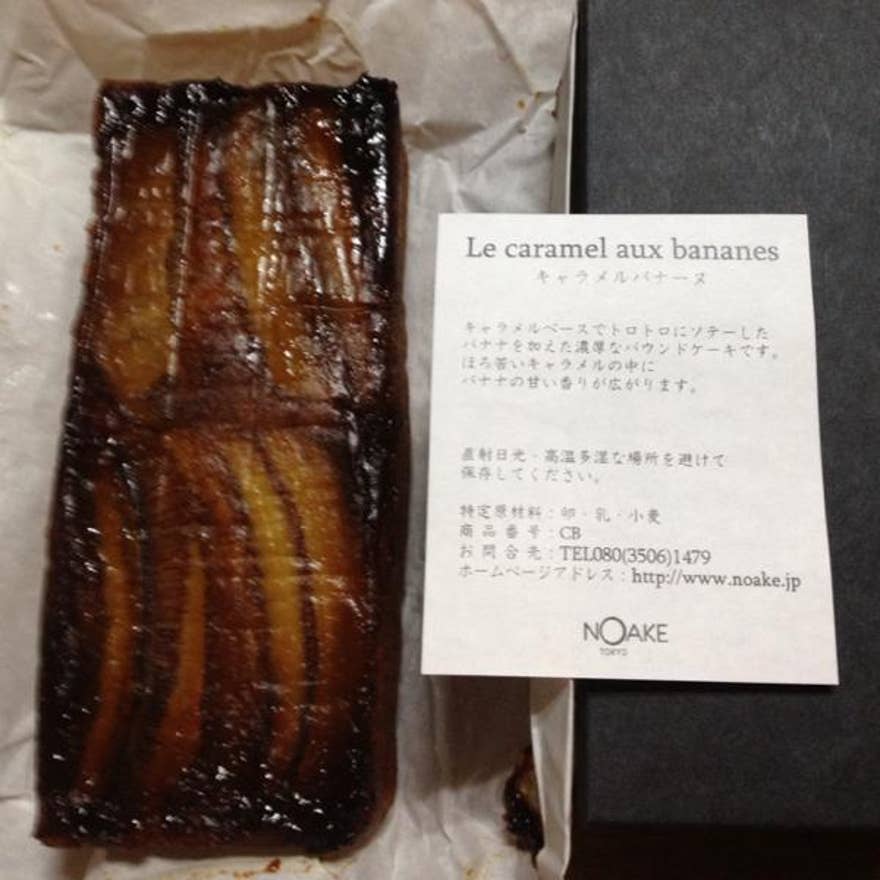 Le caramel aux bananes
キャラメルバナーヌ
キャラメルベースでトロトロにソテーした
バナナを加えた濃厚なパウンドケーキです。
ほろ苦いキャラメルの中に
バナナの甘い香りが広がります。
直射日光・高温多湿な場所を避けて
保存してください。
特定原材料：卵・乳・小麦
商品番号：CB
お問合先：TEL080(3506)1479
ホームページアドレス：http://www.noake.jp
NOAKE
TOKYO